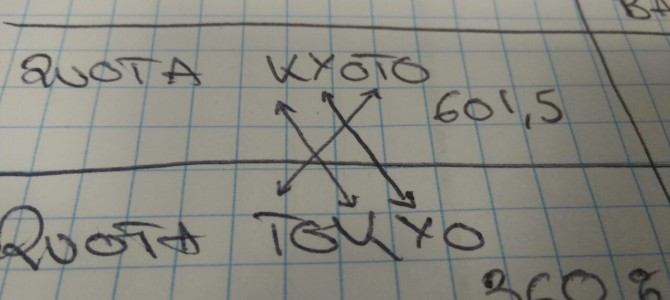 QUOTA KYOTO
601,5
QUOTA TOKYO